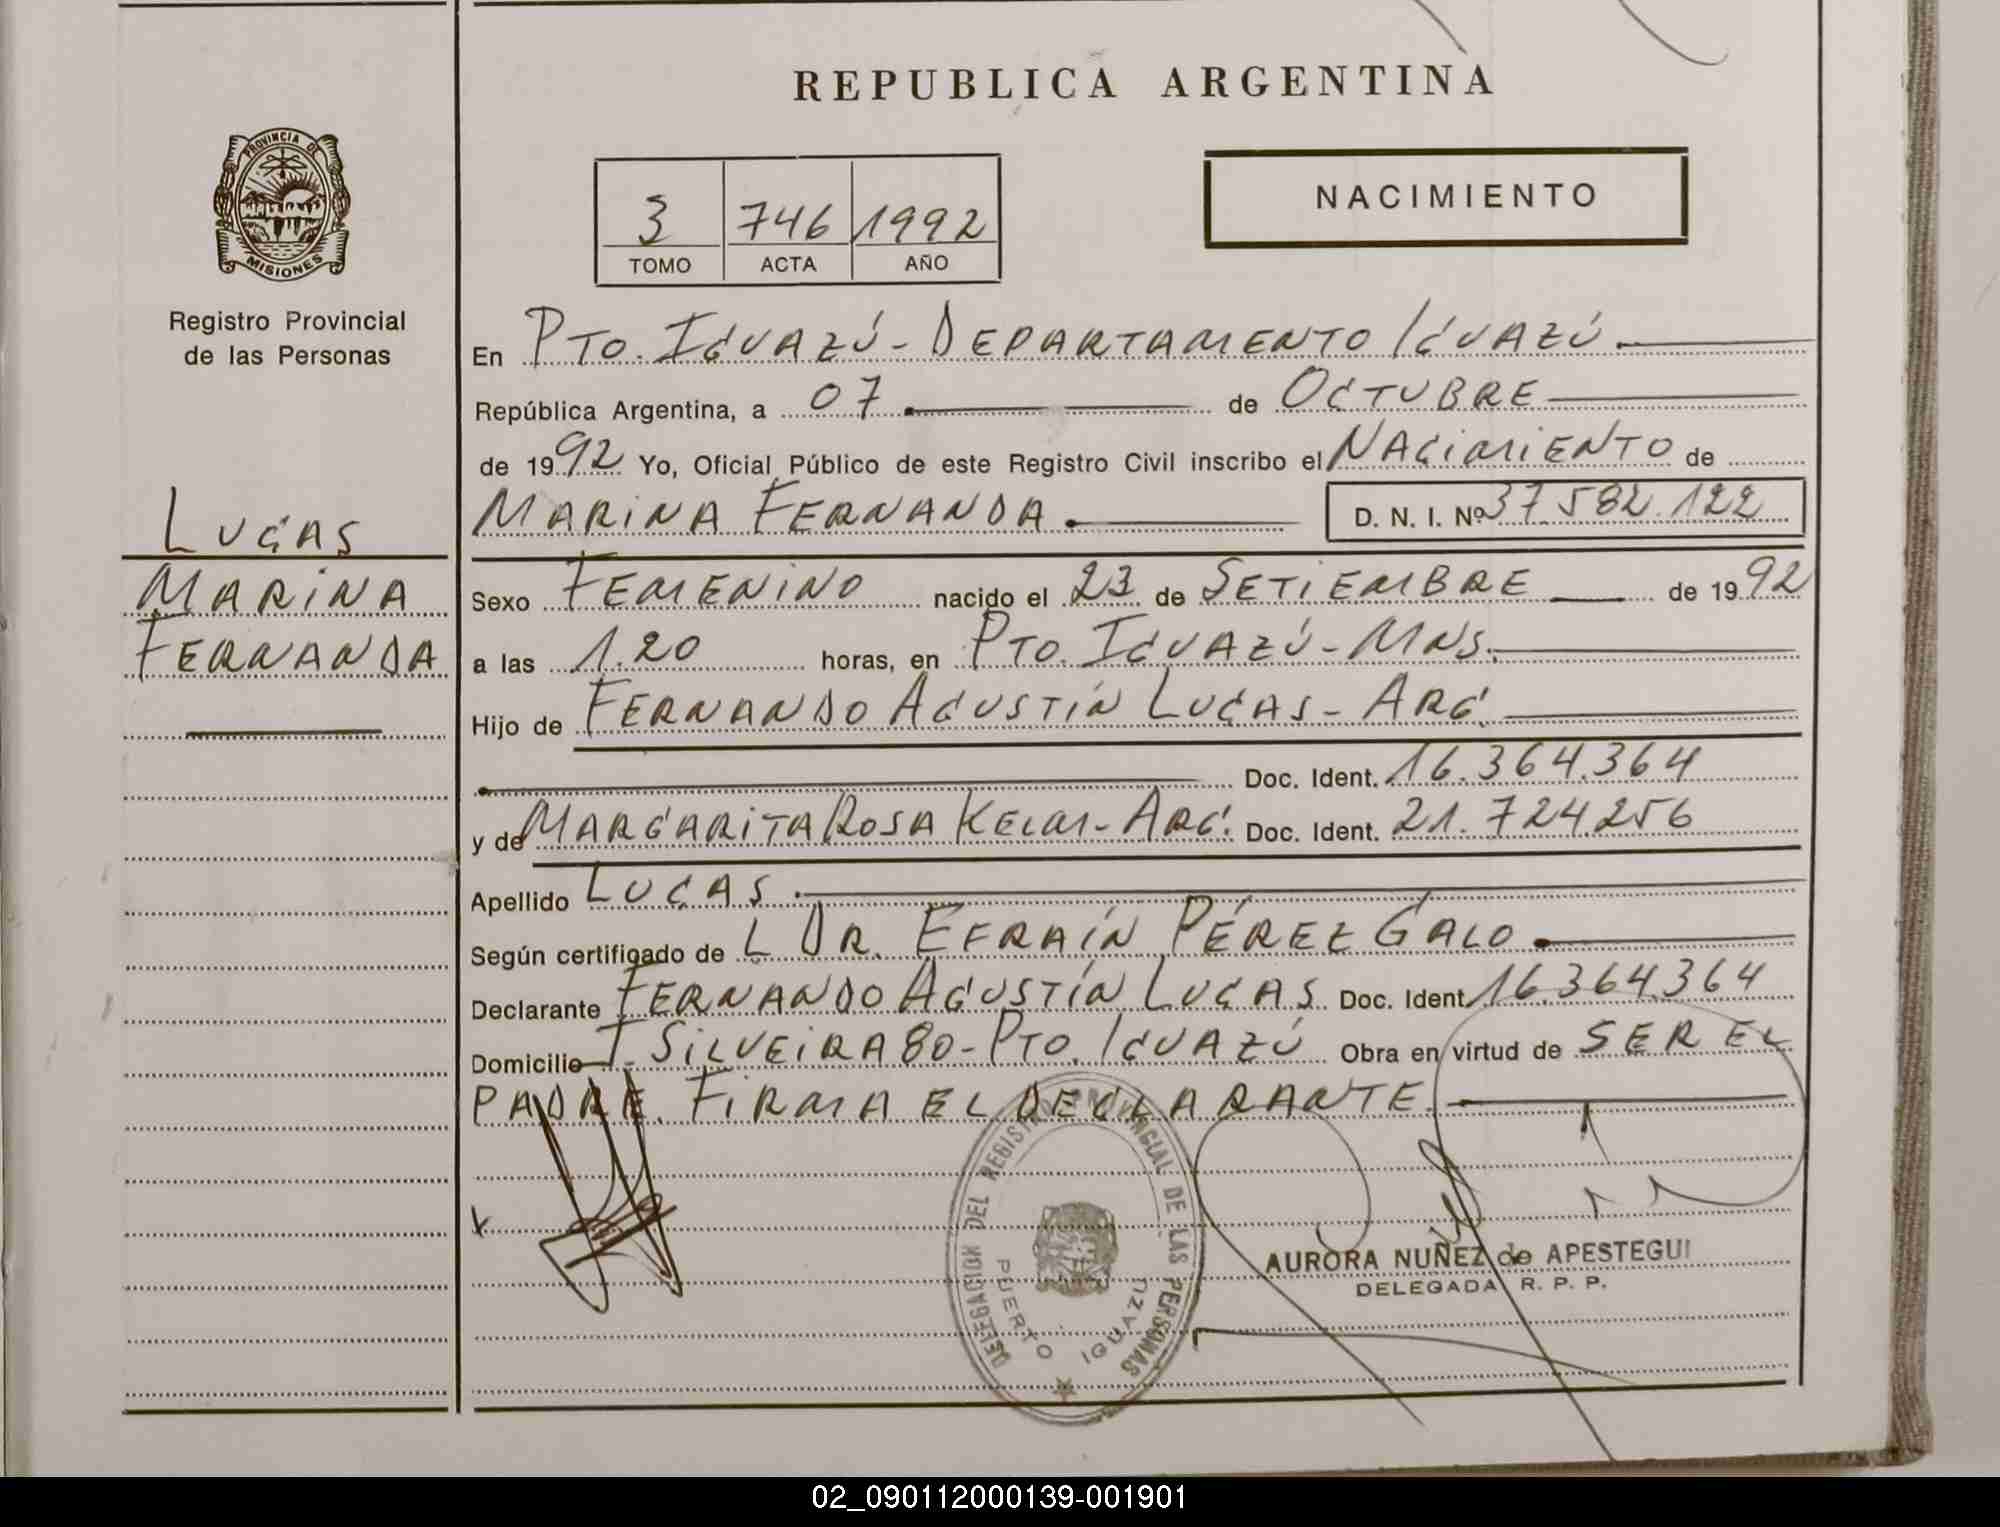 REPUBLICA ARGENTINA
PROVINCIA DE
MISIONES
Registro Provincial
de las Personas
LUCAS
MARINA
FERNANDA
3 746 1992
TOMO ACTA AÑO
NACIMIENTO
En PTO. IGUAZÚ - DEPARTAMENTO IGUAZÚ.
República Argentina, a 07 de OCTUBRE
de 1992 Yo, Oficial Público de este Registro Civil inscribo el NACIMIENTO de
MARINA FERNANDA. D. N. I. Nº 37.582.122
Sexo FEMENINO nacido el 23 de SETIEMBRE de 1992
a las 1.20 horas, en PTO. IGUAZÚ - MNS.
Hijo de FERNANDO AGUSTÍN LUCAS - ARG.
Doc. Ident. 16.364.364
y de MARGARITA ROSA - ARG. Doc. Ident. 21.724256
Apellido LUCAS.
Según certificado de L DR. EFRAÍN PÉREZ GALO.
Declarante FERNANDO AGUSTÍN LUCAS Doc. Ident. 16.364.364
Domicilio T. SILVEIRA 80 - PTO. IGUAZÚ Obra en virtud de SER EL
PADRE. FIRMA EL DECLARANTE.
DELEGACION DEL REGISTRO PROVINCIAL DE LAS PERSONAS
PUERTO IGUAZU
AURORA NUÑEZ de APESTEGUI
DELEGADA R. P. P.
02_090112000139-001901